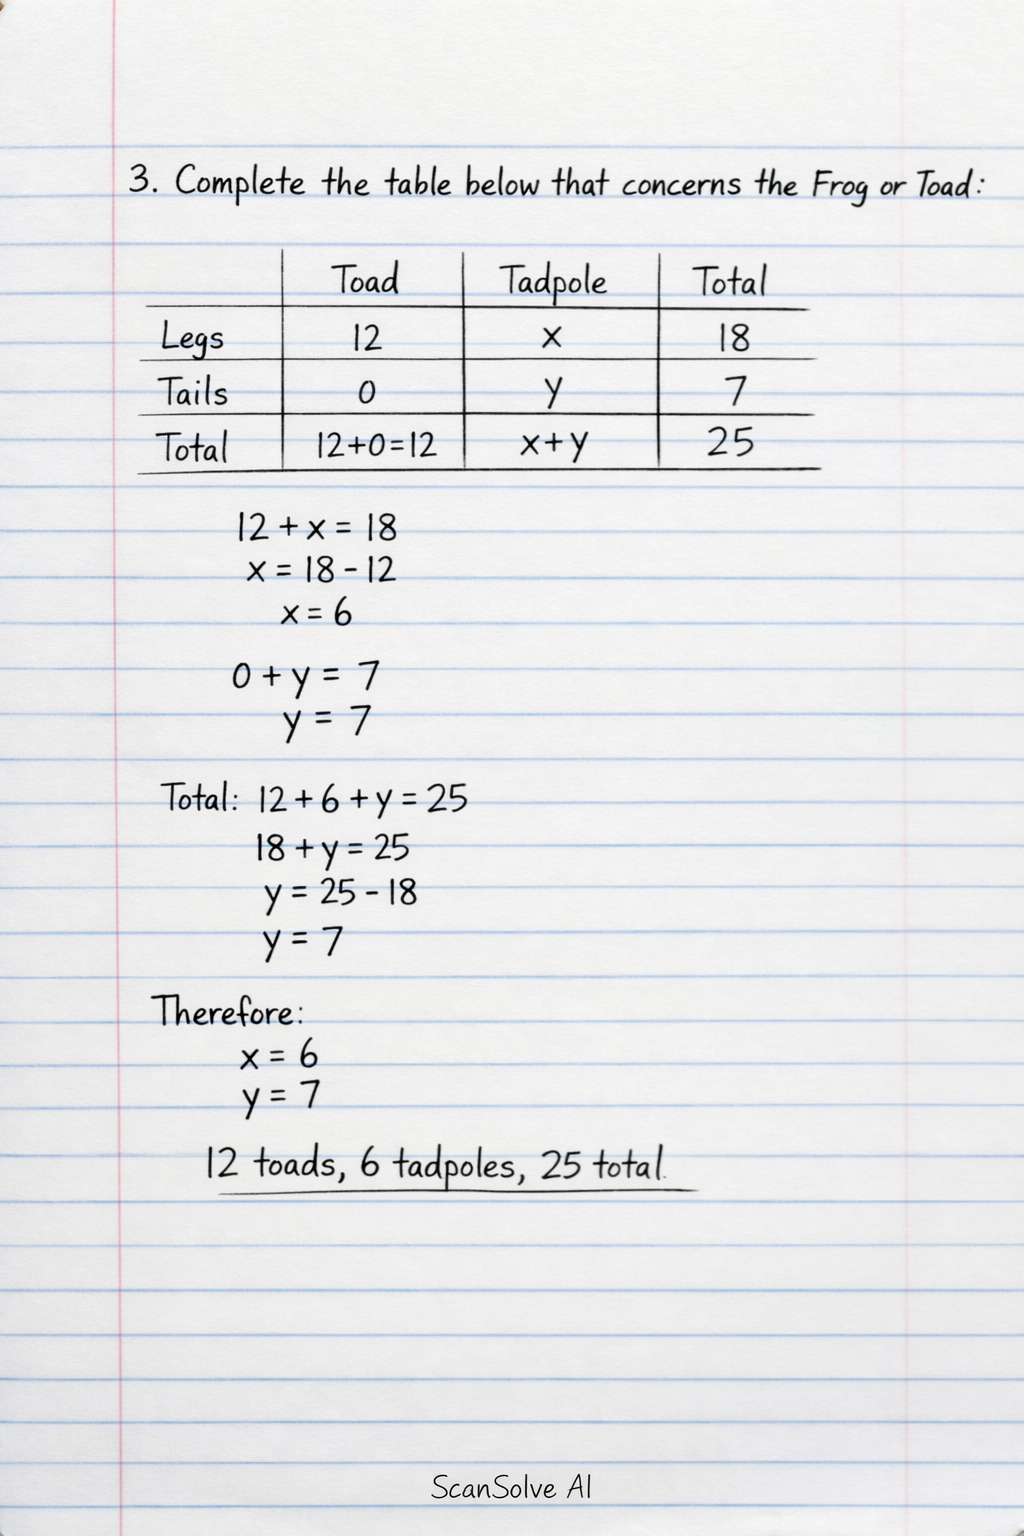 3. Complete the table below that concerns the Frog or Toad:
Toad Tadpole Total
Legs 12 x 18
Tails 0 y 7
Total 12+0=12 x+y 25
12 + x = 18
x = 18 - 12
x = 6
0 + y = 7
y = 7
Total: 12 + 6 + y = 25
18 + y = 25
y = 25 - 18
y = 7
Therefore:
x = 6
y = 7
12 toads, 6 tadpoles, 25 total.
ScanSolve AI